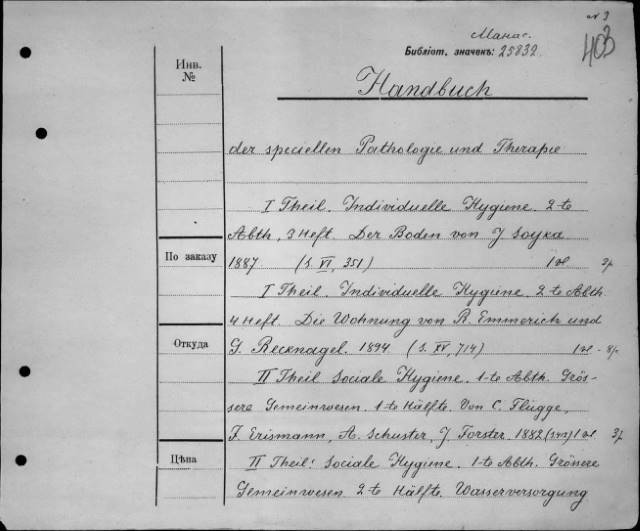 № 3
Манас.
403
Библіот. значекъ: 25832
Инв.
№
Handbuch
der speciellen Pathologie und Therapie
I Theil. Individuelle Hygiene. 2-te
Abth, 3 Heft. Der Boden von J Soyka
По заказу
1887 (S. VI, 351) 1 vl 3р
I Theil. Individuelle Hygiene 2-te Abth.
4 Heft. Die Wohnung von R. Emmerich und
Откуда
G. Recknagel. 1894 (S. XV, 714) 1 vl - 8р
II Theil Sociale Hygiene. 1-te Abth. Grös-
sere Gemeinwesen. 1-te Hälfte. Von C. Flügge,
F. Erismann, A. Schuster, J Forster. 1882 1 vl. 3р
Цѣна
II Theil: Sociale Hygiene. 1-te Abth. Grönere
Gemeinwesen 2-te Hälfte. Wasserversorgung